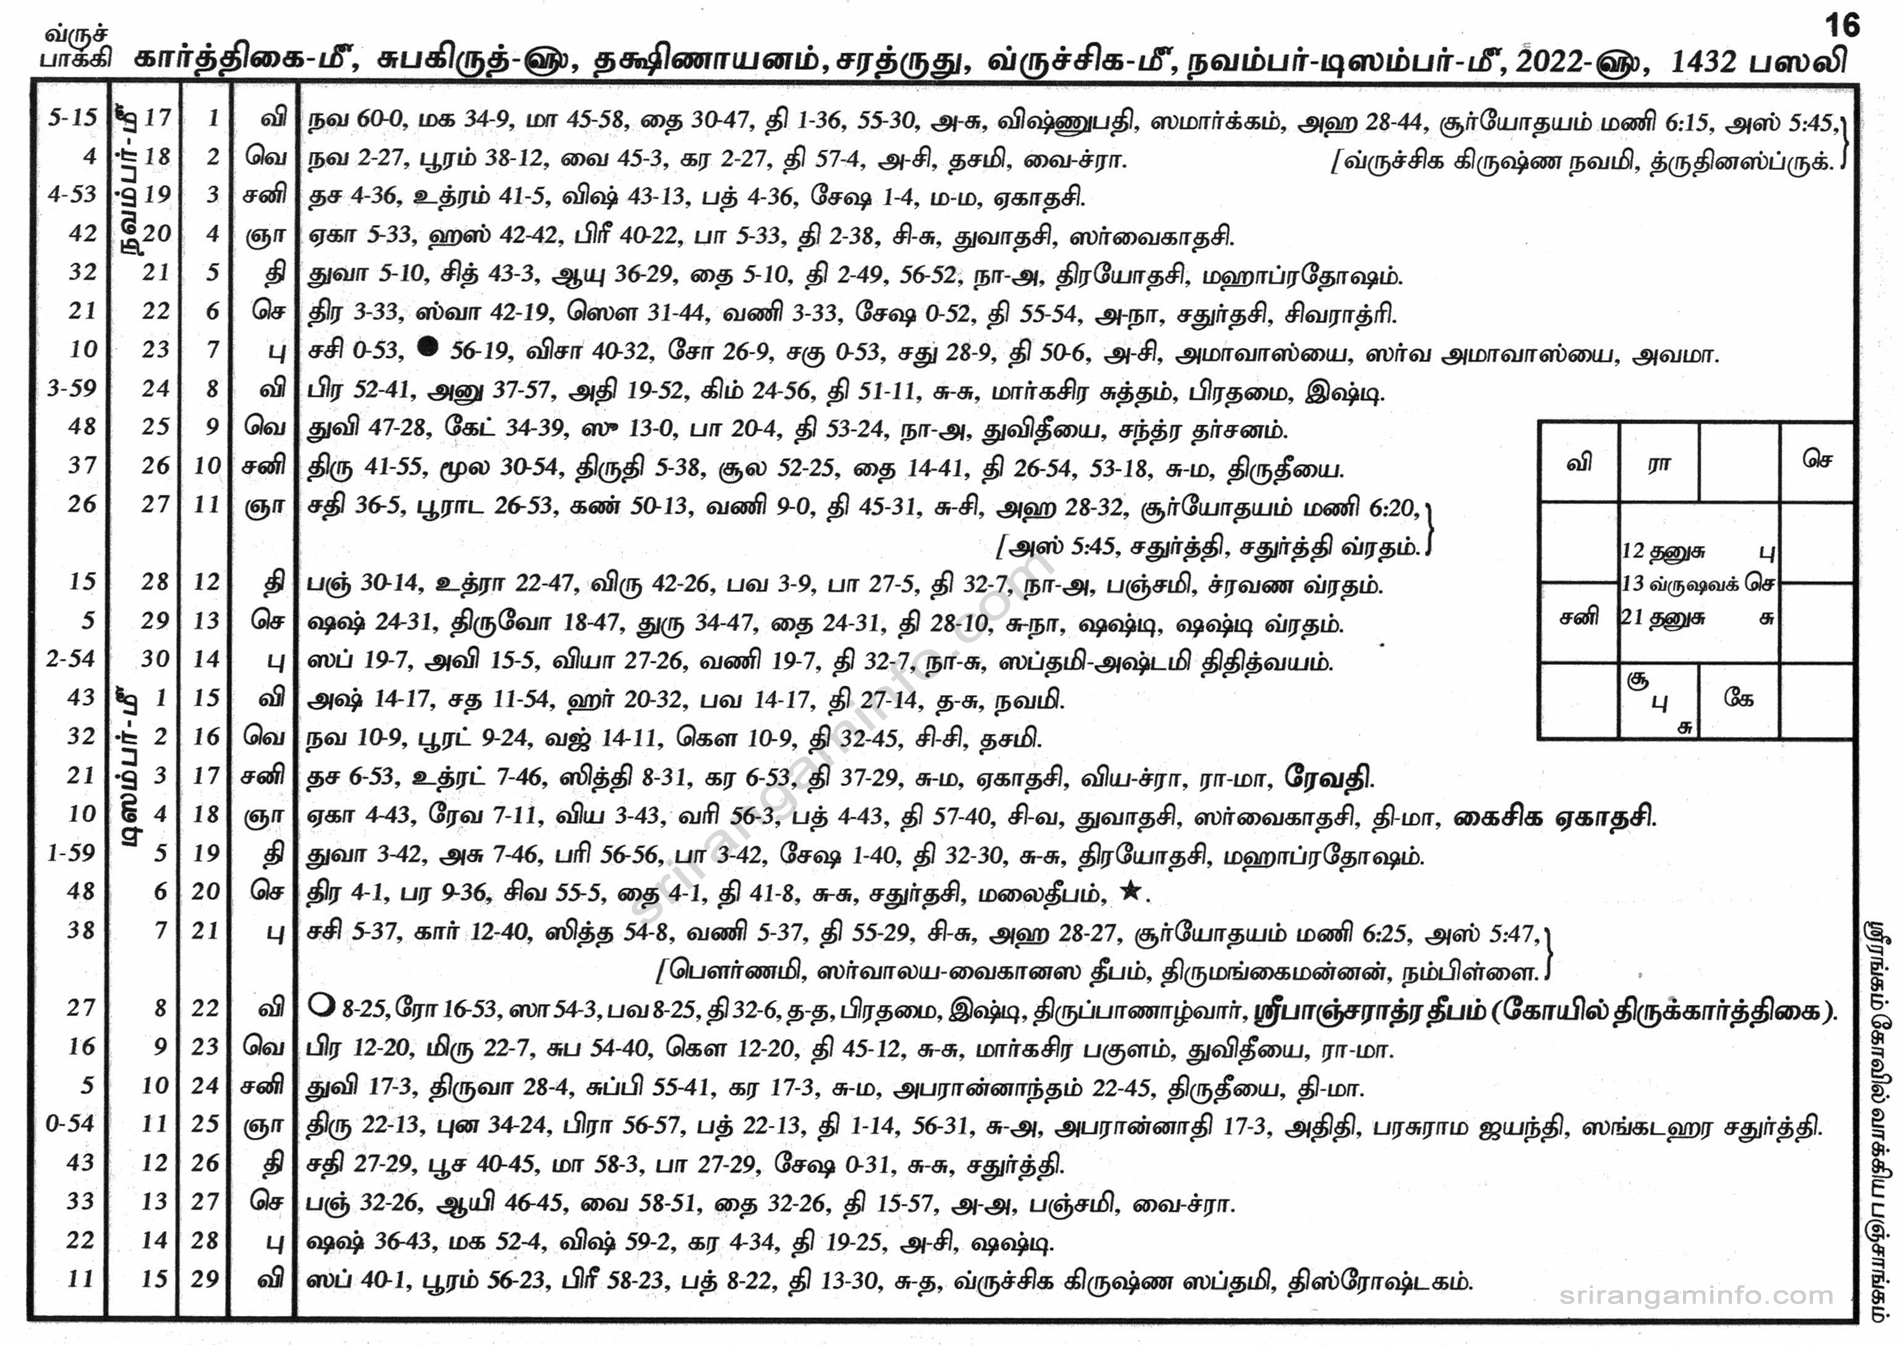 16
வ்ருச்
பாக்கி கார்த்திகை-மீ, சுபகிருத்-ஹு, தக்ஷிணாயனம், சரத்ருது, வ்ருச்சிக-மீ, நவம்பர்-டிஸம்பர்-மீ, 2022-ஹு, 1432 பஸலி
நவம்பர்-மீ
5-15 17 1 வி நவ 60-0, மக 34-9, மா 45-58, தை 30-47, தி 1-36, 55-30, அ-சு, விஷ்ணுபதி, ஸமார்க்கம், அஹ 28-44, சூர்யோதயம் மணி 6:15, அஸ் 5:45,
4 18 2 வெ நவ 2-27, பூரம் 38-12, வை 45-3, கர 2-27, தி 57-4, அ-சி, தசமி, வை-ச்ரா. [வ்ருச்சிக கிருஷ்ண நவமி, த்ருதினஸ்ப்ருக்.
4-53 19 3 சனி தச 4-36, உத்ரம் 41-5, விஷ் 43-13, பத் 4-36, சேஷ 1-4, ம-ம, ஏகாதசி.
42 20 4 ஞா ஏகா 5-33, ஹஸ் 42-42, பிரீ 40-22, பா 5-33, தி 2-38, சி-சு, துவாதசி, ஸர்வைகாதசி.
32 21 5 தி துவா 5-10, சித் 43-3, ஆயு 36-29, தை 5-10, தி 2-49, 56-52, நா-அ, திரயோதசி, மஹாப்ரதோஷம்.
21 22 6 செ திர 3-33, ஸ்வா 42-19, ஸௌ 31-44, வணி 3-33, சேஷ 0-52, தி 55-54, அ-நா, சதுர்தசி, சிவராத்ரி.
10 23 7 பு சசி 0-53, ● 56-19, விசா 40-32, சோ 26-9, சகு 0-53, சது 28-9, தி 50-6, அ-சி, அமாவாஸ்யை, ஸர்வ அமாவாஸ்யை, அவமா.
3-59 24 8 வி பிர 52-41, அனு 37-57, அதி 19-52, கிம் 24-56, தி 51-11, சு-சு, மார்கசிர சுத்தம், பிரதமை, இஷ்டி.
48 25 9 வெ துவி 47-28, கேட் 34-39, ஸு 13-0, பா 20-4, தி 53-24, நா-அ, துவிதீயை, சந்த்ர தர்சனம்.
37 26 10 சனி திரு 41-55, மூல 30-54, திருதி 5-38, சூல 52-25, தை 14-41, தி 26-54, 53-18, சு-ம, திருதீயை.
26 27 11 ஞா சதி 36-5, பூராட 26-53, கண் 50-13, வணி 9-0, தி 45-31, சு-சி, அஹ 28-32, சூர்யோதயம் மணி 6:20,
[அஸ் 5:45, சதுர்த்தி, சதுர்த்தி வ்ரதம்.
15 28 12 தி பஞ் 30-14, உத்ரா 22-47, விரு 42-26, பவ 3-9, பா 27-5, தி 32-7, நா-அ, பஞ்சமி, ச்ரவண வ்ரதம்.
5 29 13 செ ஷஷ் 24-31, திருவோ 18-47, துரு 34-47, தை 24-31, தி 28-10, சு-நா, ஷஷ்டி, ஷஷ்டி வ்ரதம்.
2-54 30 14 பு ஸப் 19-7, அவி 15-5, வியா 27-26, வணி 19-7, தி 32-7, நா-சு, ஸப்தமி-அஷ்டமி திதித்வயம்.
டிஸம்பர்-மீ
43 1 15 வி அஷ் 14-17, சத 11-54, ஹர் 20-32, பவ 14-17, தி 27-14, த-சு, நவமி.
32 2 16 வெ நவ 10-9, பூரட் 9-24, வஜ் 14-11, கௌ 10-9, தி 32-45, சி-சி, தசமி.
21 3 17 சனி தச 6-53, உத்ரட் 7-46, ஸித்தி 8-31, கர 6-53, தி 37-29, சு-ம, ஏகாதசி, விய-ச்ரா, ரா-மா, ரேவதி.
10 4 18 ஞா ஏகா 4-43, ரேவ 7-11, விய 3-43, வரி 56-3, பத் 4-43, தி 57-40, சி-வ, துவாதசி, ஸர்வைகாதசி, தி-மா, கைசிக ஏகாதசி.
1-59 5 19 தி துவா 3-42, அசு 7-46, பரி 56-56, பா 3-42, சேஷ 1-40, தி 32-30, சு-சு, திரயோதசி, மஹாப்ரதோஷம்.
48 6 20 செ திர 4-1, பர 9-36, சிவ 55-5, தை 4-1, தி 41-8, சு-சு, சதுர்தசி, மலைதீபம், ★.
38 7 21 பு சசி 5-37, கார் 12-40, ஸித்த 54-8, வணி 5-37, தி 55-29, சி-சு, அஹ 28-27, சூர்யோதயம் மணி 6:25, அஸ் 5:47,
[பௌர்ணமி, ஸர்வாலய-வைகானஸ தீபம், திருமங்கைமன்னன், நம்பிள்ளை.
27 8 22 வி ○ 8-25, ரோ 16-53, ஸா 54-3, பவ 8-25, தி 32-6, த-த, பிரதமை, இஷ்டி, திருப்பாணாழ்வார், ஸ்ரீபாஞ்சராத்ர தீபம் (கோயில் திருக்கார்த்திகை).
16 9 23 வெ பிர 12-20, மிரு 22-7, சுப 54-40, கௌ 12-20, தி 45-12, சு-சு, மார்கசிர பகுளம், துவிதீயை, ரா-மா.
5 10 24 சனி துவி 17-3, திருவா 28-4, சுப்பி 55-41, கர 17-3, சு-ம, அபரான்னாந்தம் 22-45, திருதீயை, தி-மா.
0-54 11 25 ஞா திரு 22-13, புன 34-24, பிரா 56-57, பத் 22-13, தி 1-14, 56-31, சு-அ, அபரான்னாதி 17-3, அதிதி, பரசுராம ஜயந்தி, ஸங்கடஹர சதுர்த்தி.
43 12 26 தி சதி 27-29, பூச 40-45, மா 58-3, பா 27-29, சேஷ 0-31, சு-சு, சதுர்த்தி.
33 13 27 செ பஞ் 32-26, ஆயி 46-45, வை 58-51, தை 32-26, தி 15-57, அ-அ, பஞ்சமி, வை-ச்ரா.
22 14 28 பு ஷஷ் 36-43, மக 52-4, விஷ் 59-2, கர 4-34, தி 19-25, அ-சி, ஷஷ்டி.
11 15 29 வி ஸப் 40-1, பூரம் 56-23, பிரீ 58-23, பத் 8-22, தி 13-30, சு-த, வ்ருச்சிக கிருஷ்ண ஸப்தமி, திஸ்ரோஷ்டகம்.
வி ரா செ
12 தனுசு பு
13 வ்ருஷவக் செ
சனி 21 தனுசு சு
சூ
பு கே
சு
ஸ்ரீரங்கம் கோவில் வாக்கிய பஞ்சாங்கம்
srirangaminfo.com
srirangaminfo.com